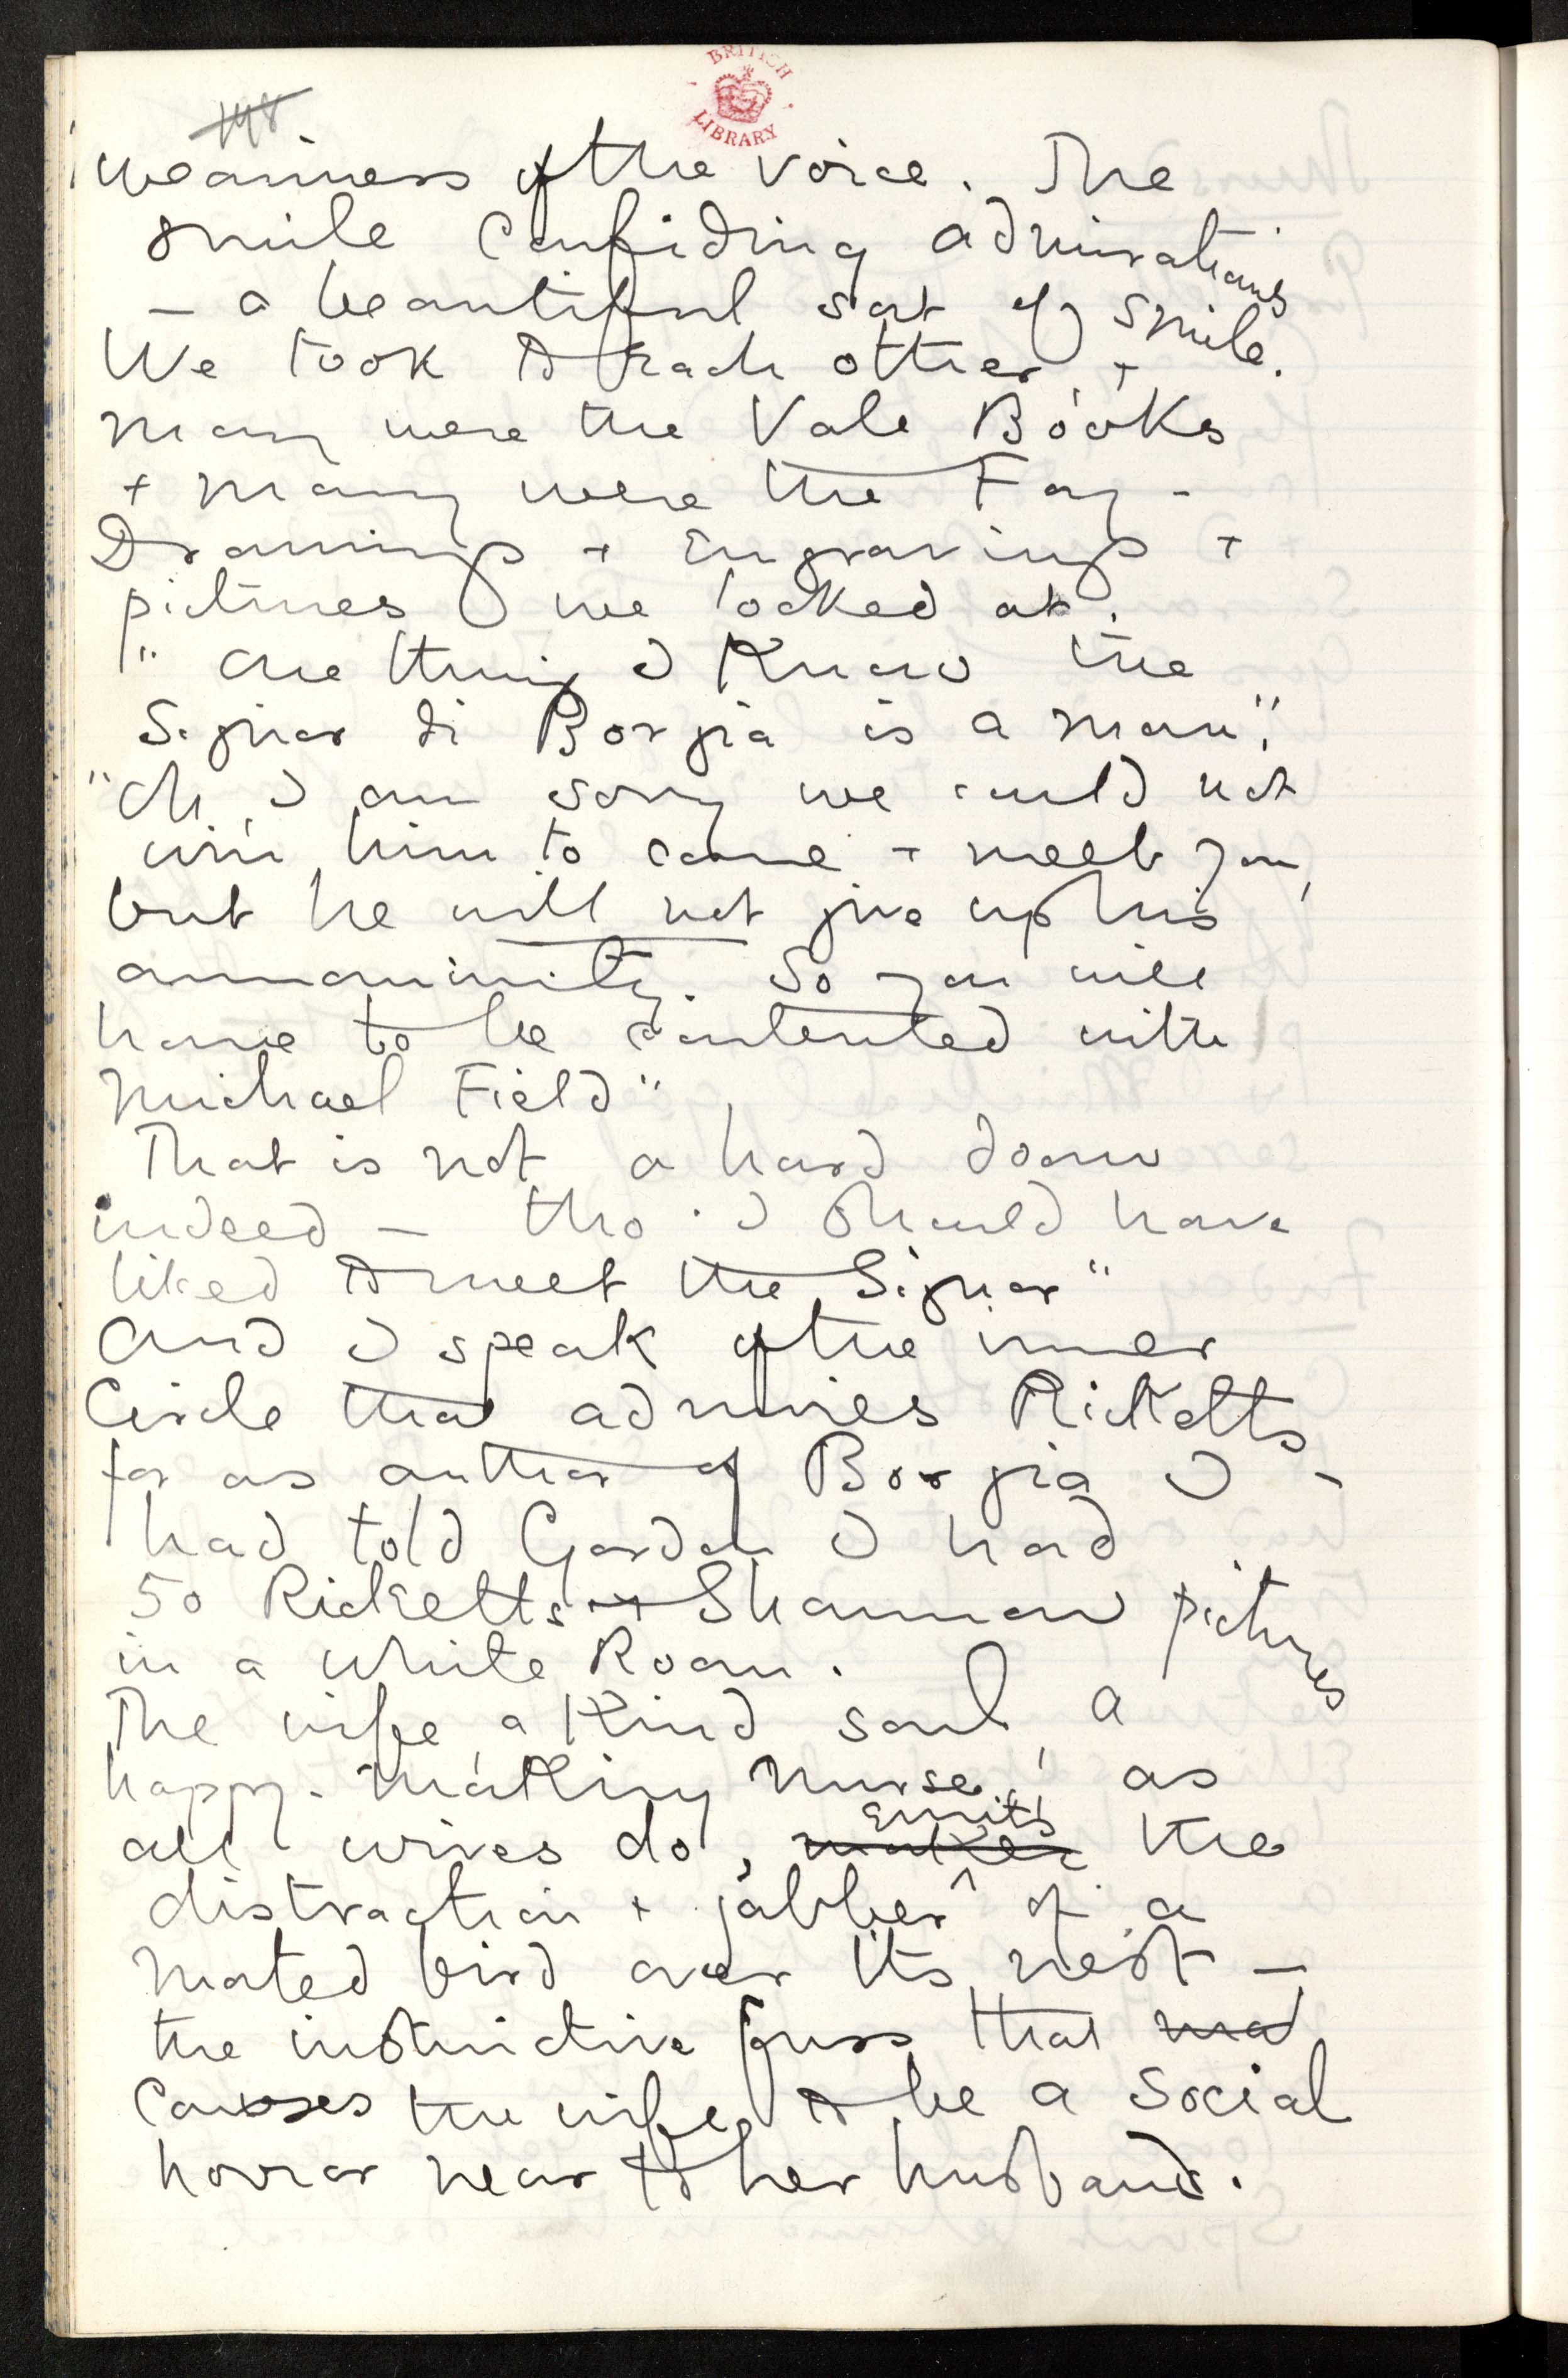 BRITISH
LIBRARY
148
weariness of the voice. The
smile confiding admirations
– a beautiful sort of smile.
We took to each other, +
many were the Vale Books
+ many were the Fay –
Drawings + Engravings +
pictures we looked at.
"One thing I know the
Signor di Borgia is a man".
"Oh, I am sorry we could not
win him to come + meet you,
but he will not give up his
annonimity. So you will
have to be contented with
Michael Field"
That is not a hard doom
indeed – tho' I should have
liked to meet the Signor"
And I speak of the inner
Circle that admires Ricketts –
for as author of Borgia I
had told Gordon I had
50 Ricketts + Shannon pictures
in a White Room.
The wife, a kind soul, a
happy-making nurse, as
all wives do, makes emits the
distraction + jabber of a
mated bird over its nest –
the instinctive fuss that ma
causes the wife to be a social
horror near to her husband.